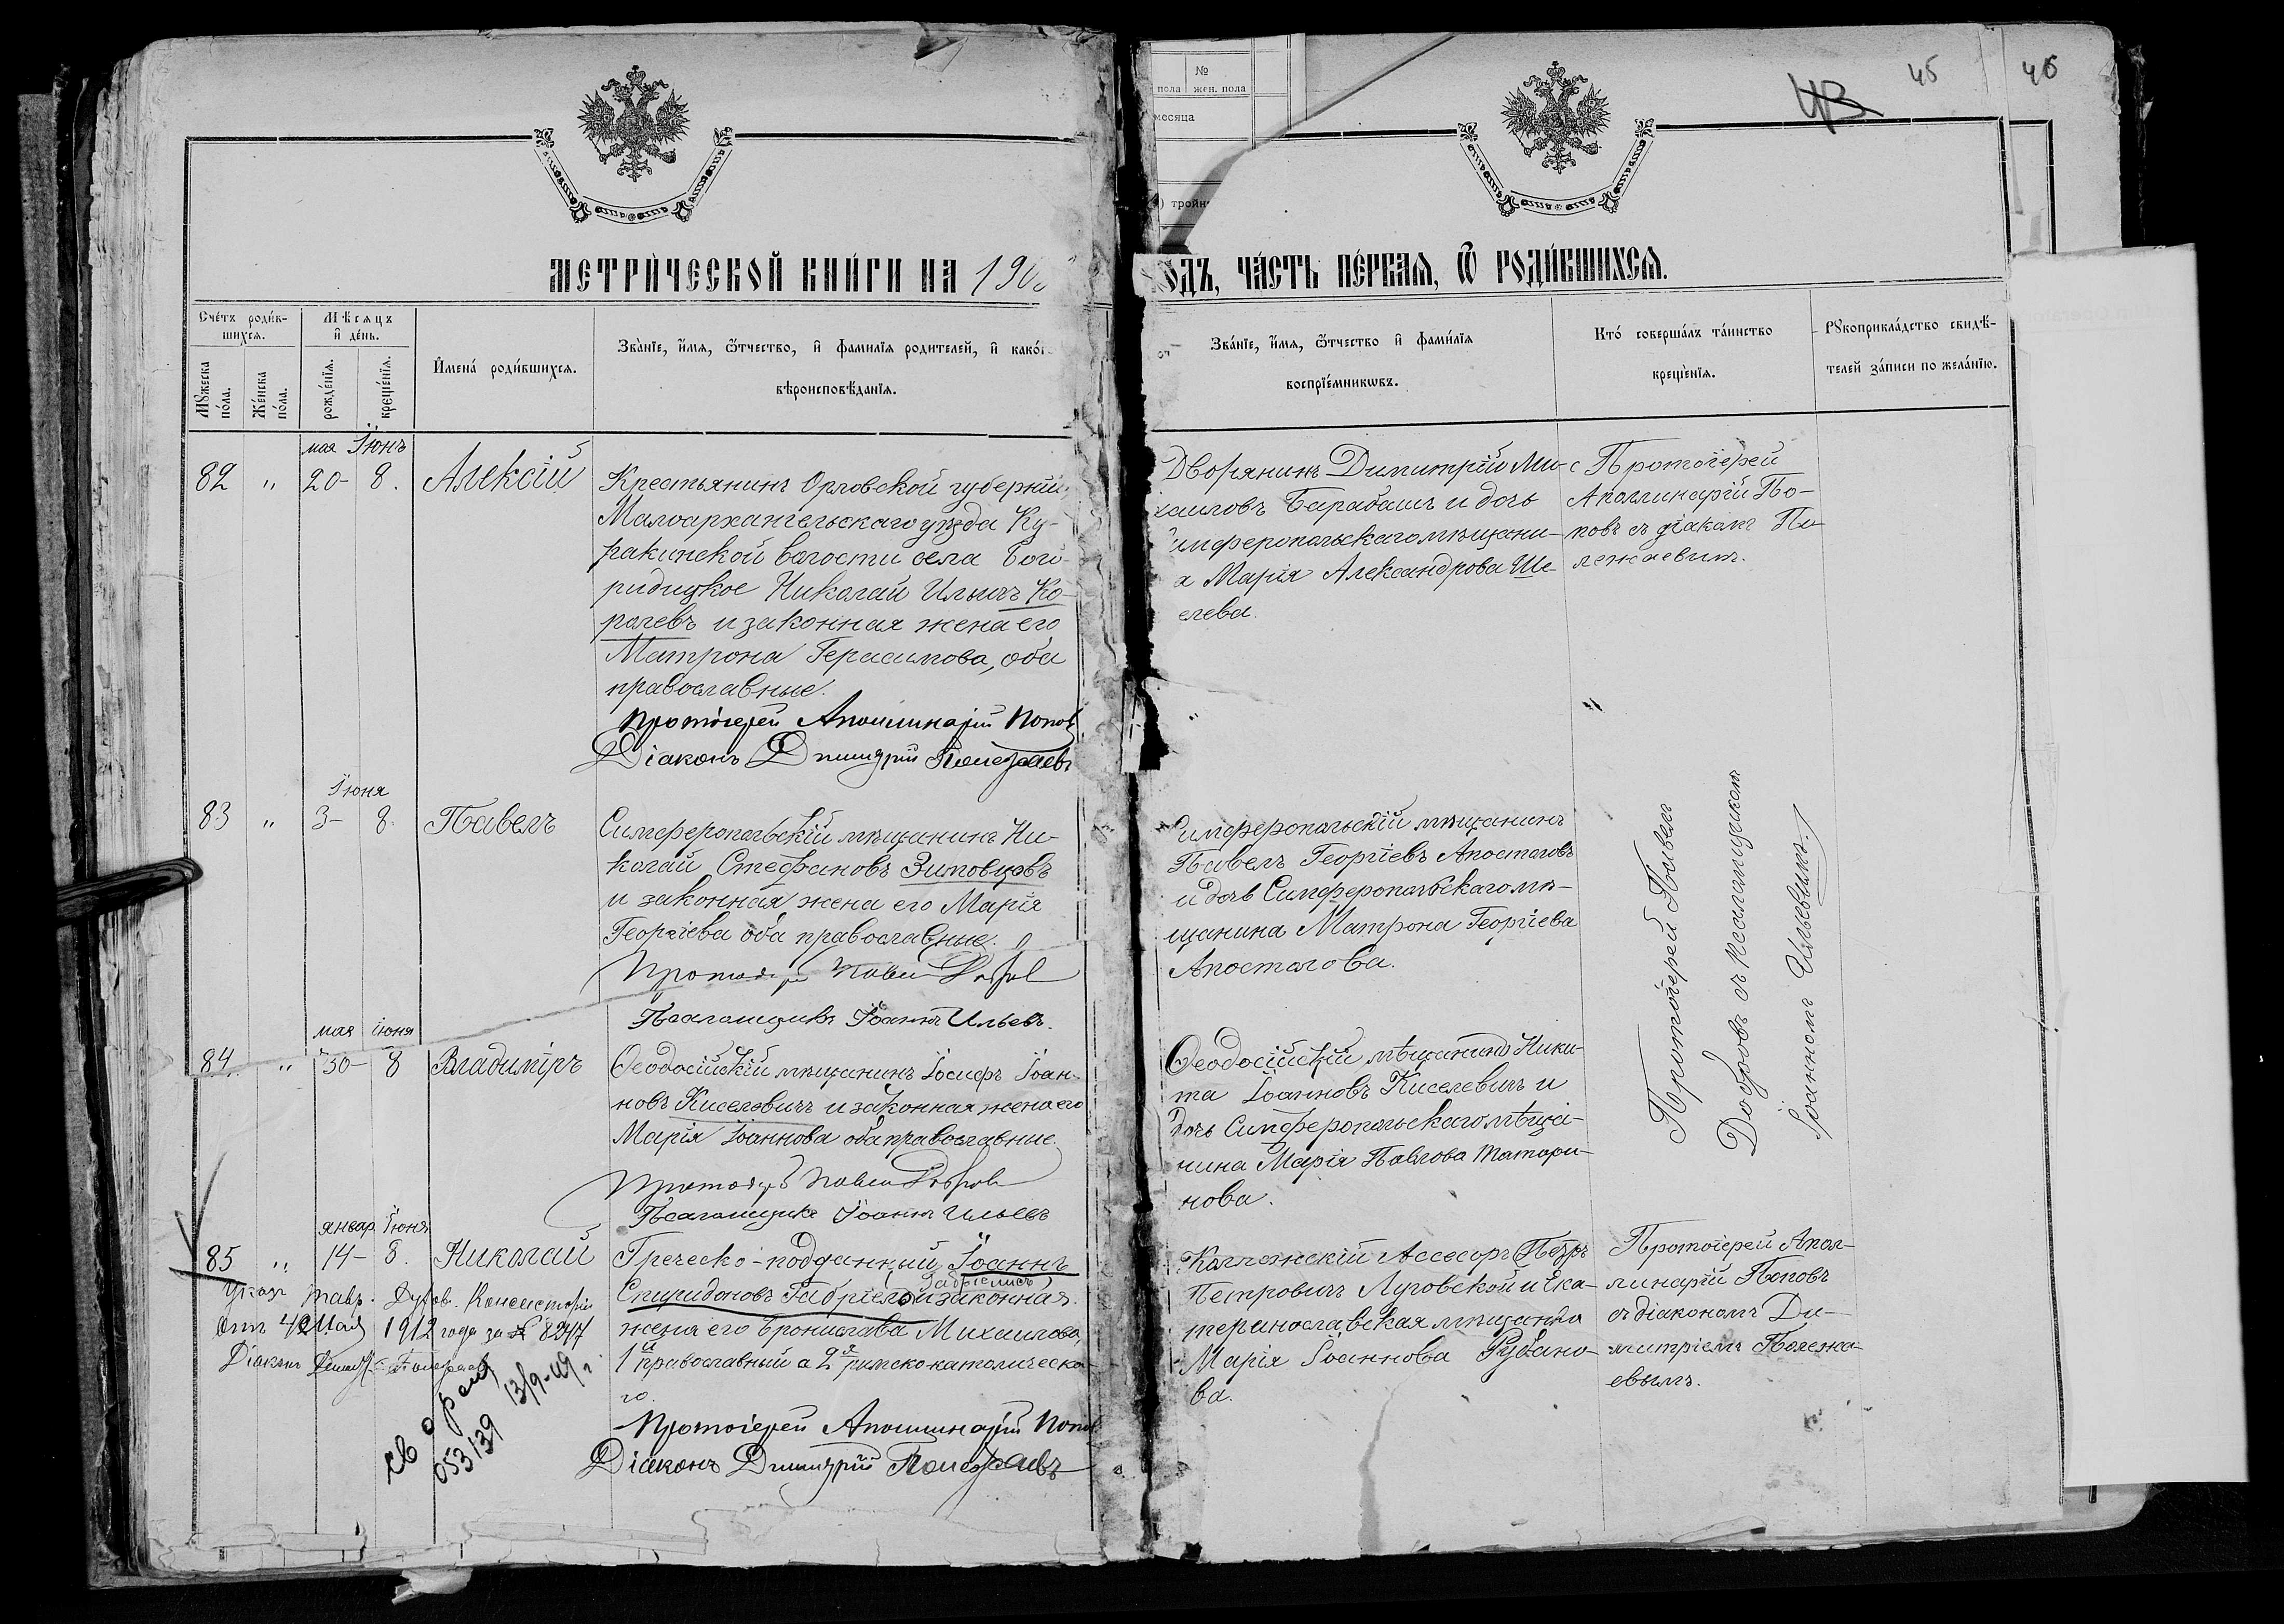 45
46
43
№
пола жен. пола
месяца
МЕТРИ́ЧЕСКОЙ КНИ́ГИ НА 190
ОДЪ, ЧА́СТЬ ПЕ́РВАѦ, Ѿ РОДИ́ВШИХСѦ.
Сче́тъ роди́в-
шихсѧ.
Мѣсѧцъ
и҆ де́нь.
Мꙋжеска
по́ла.
Же́нска
по́ла.
рожде́нїѧ.
креще́нїѧ.
И҆мена́ роди́вшихсѧ.
Зва́нїе, и҆́мѧ, ѻ҆́тчество, и҆ фамилїѧ родителей, и҆ како́г
вѣроисповѣ́данїѧ.
Зва́нїе, и҆́мѧ, ѻ҆́тчество и҆ фами́лїѧ
воспрїе́мникѡвъ.
Кто́ соверша́лъ та́инство
креще́нїѧ.
Рꙋкоприкла́дство свидѣ́-
телей за́писи по жела́нїю.
мая Іюнъ
82 " 20- 8. Алексій
Крестьянинъ Орловской губерніи
Малоархангельскаго уѣзда Ку-
ракинской волости села Бого-
ридицкое Николай Ильичъ Ко-
ролевъ и законная жена его
Матрона Герасимова, оба
православные.
Протоіерей Аполлинарій Поповъ
Діаконъ Димитрій Полежаевъ
Дворянинъ Димитрій Ми-
хаиловъ Барабашъ и дочь
имферопольскаго мѣщани-
а Марія Александрова Ше-
елева.
Протоіерей
Аполлинарій По-
повъ съ діакон По-
лежаевымъ.
Іюня
83 " 3- 8. Павелъ
Симферопольскій мѣщанинъ Ни-
колай Стефановъ Зимовцовъ
и законная жена его Марія
Георгіева оба православные.
Протоіер Павел Добров
Псаломщикъ Іоаннъ Ильевъ.
Симферопольскій мѣщанинъ
Павелъ Георгіевъ Апостоловъ
и дочь Симферопольскаго мѣ-
щанина Матрона Георгіева
Апостолова.
Протоіерей Павелъ
Добровъ съ псаломщикомъ
Іоанномъ Ильевымъ.
мая іюня
84 " 30- 8 Владиміръ
Ѳеодосійскій мѣщанинъ Іосифъ Іоан-
новъ Киселевичъ и законная жена его
Марія Іоаннова оба православные.
Протоіер Павел Добров
Псаломщикъ Іоаннъ Ильевъ
Ѳеодосійскій мѣщанинъ Ники-
та Іоанновъ Киселевичъ и
дочь Симферопольскаго мѣща-
нина Марія Павлова Татари-
нова.
январ Іюня
85 " 14- 8. Николай
Греческо-подданный Іоаннъ
Спиридоновъ Габріел и законная
жена его Бронислава Михаилова,
1й православный а 2я римско католическо
го.
Протоіерей Аполлинарій Попов
Діаконъ Димитрій Полежаевъ
Коллежскій Ассесоръ Петръ
Петровичъ Луговской и Ека-
теринославская мѣщанка
Марія Іоаннова Рубано-
ва.
Протоіерей Апол-
линарій Поповъ
съ діакономъ Ди-
митріемъ Полежа-
евымъ.
Указ Тавр. Духов. Консисторіи
отъ 4 Мая 1912 года за № 8247
Діаконъ Димитр. Полежаев
св о рожд
053139 13/9-49 г.